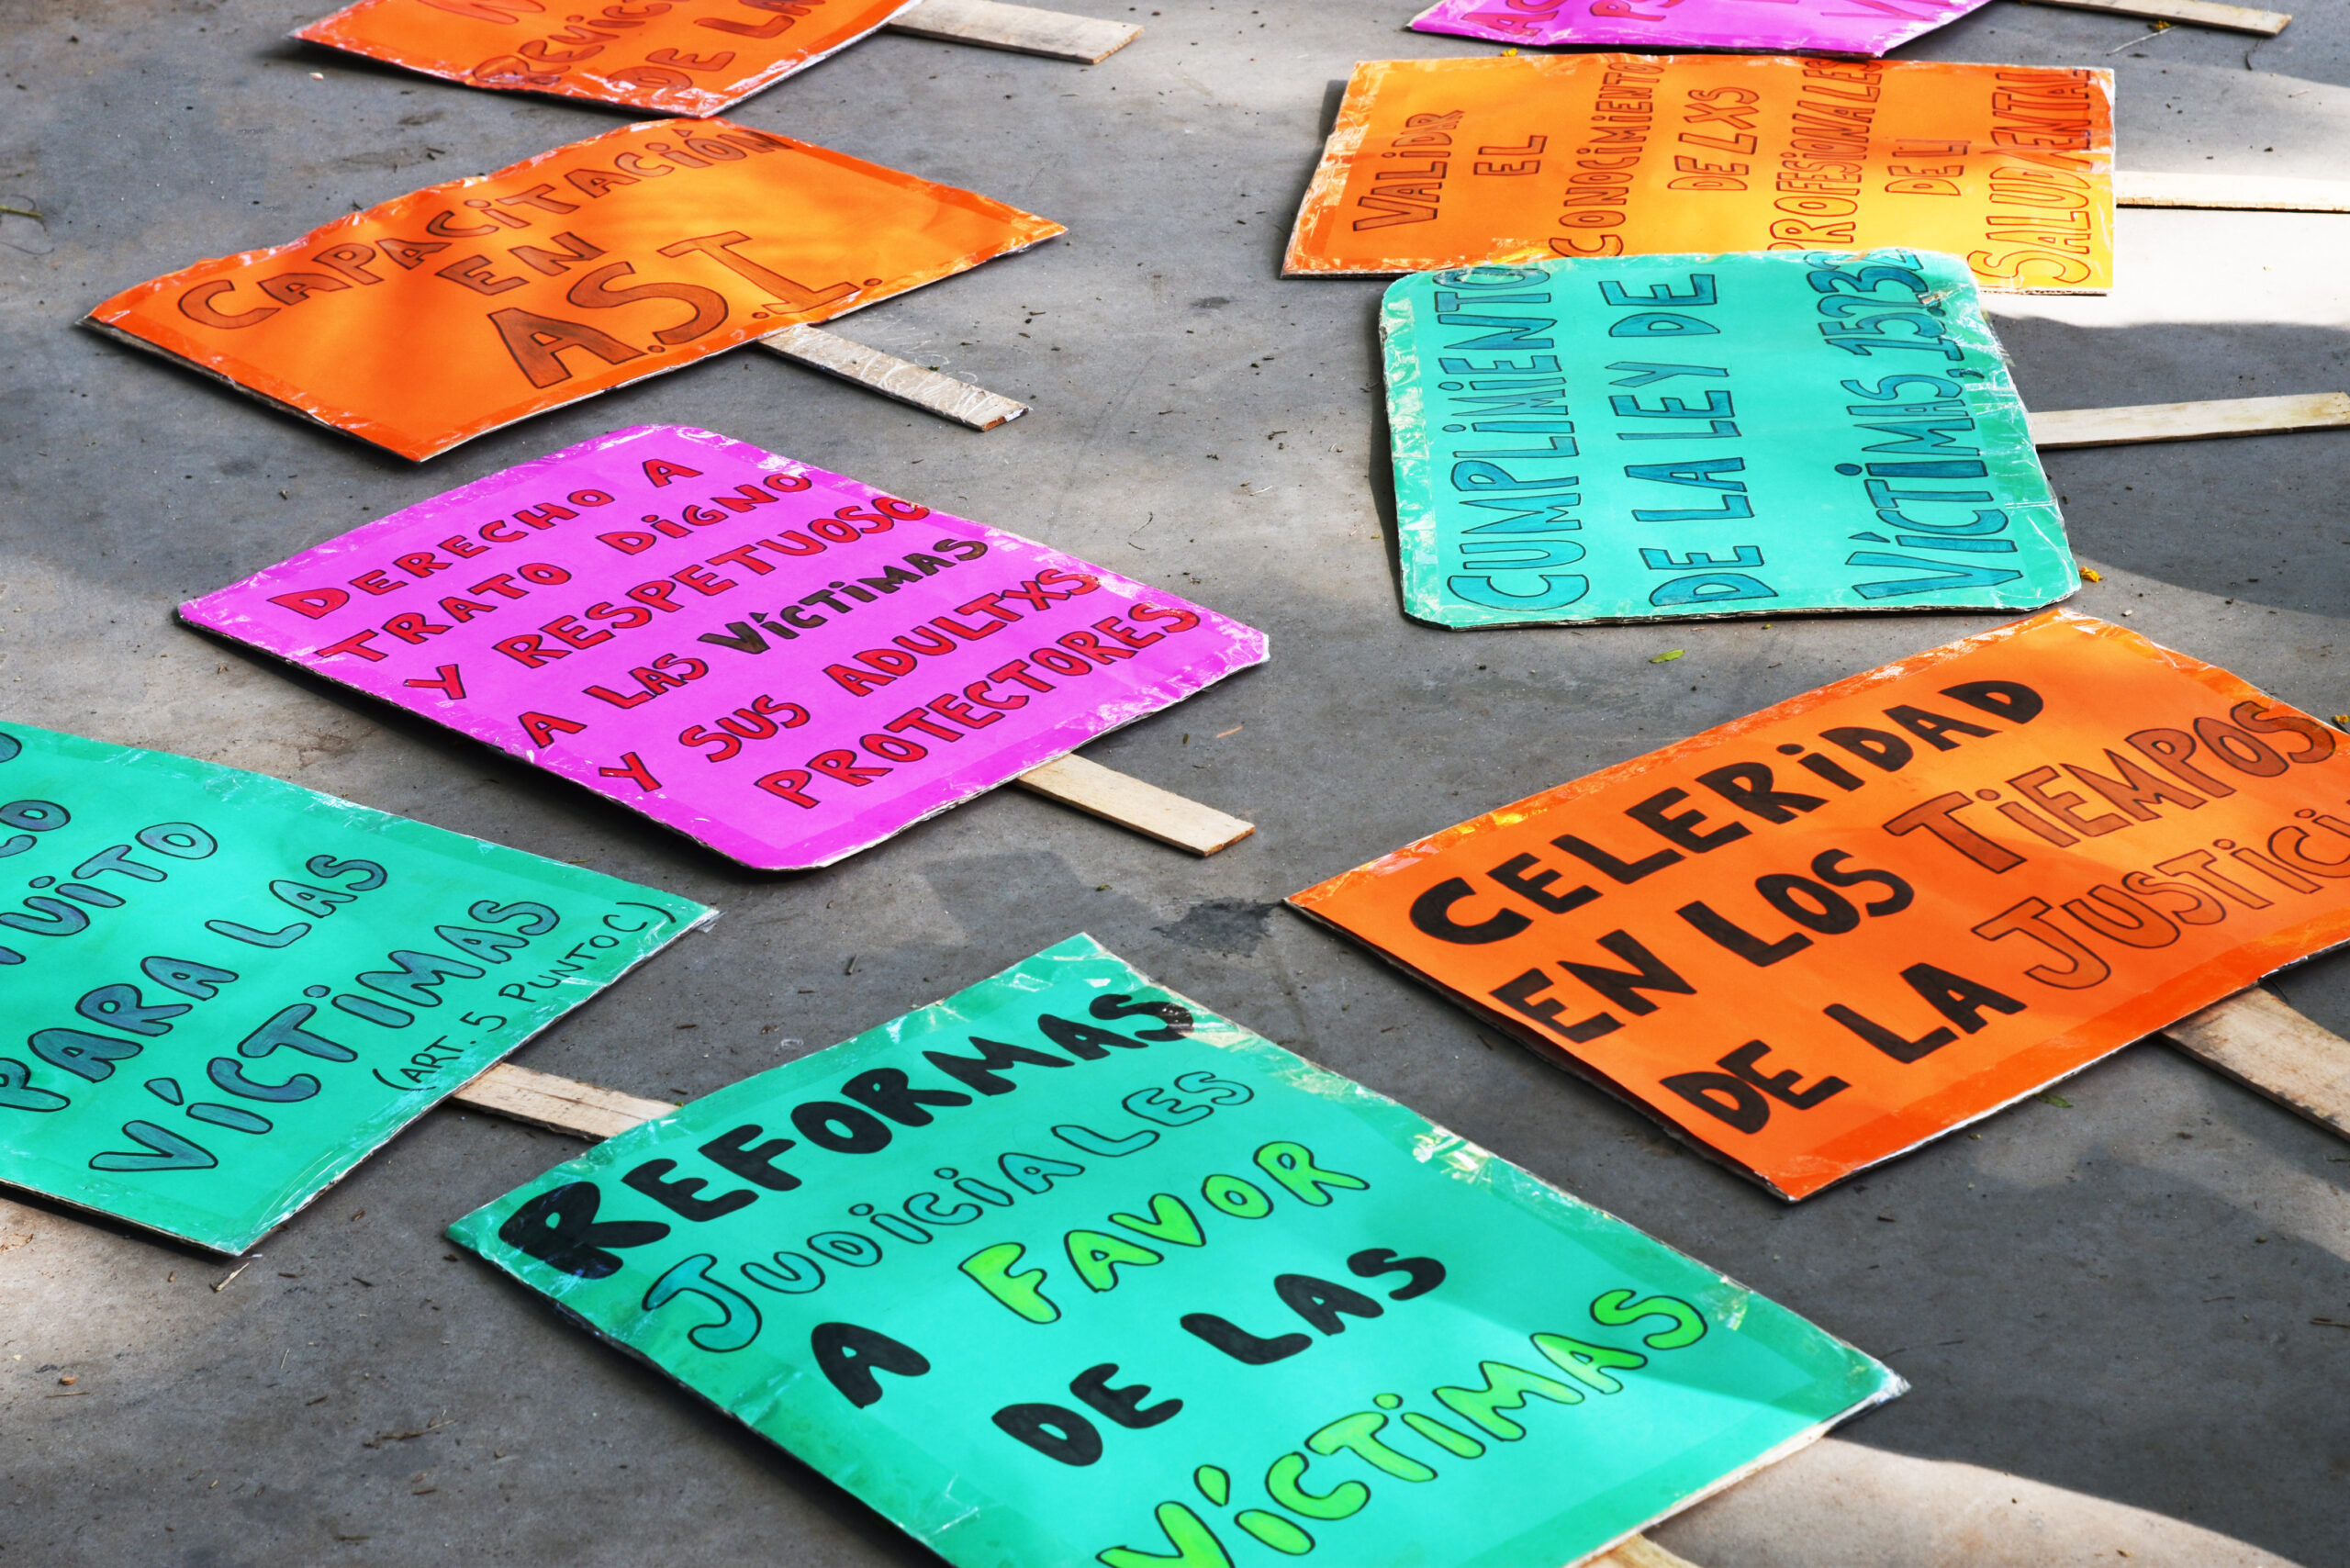 DE LA
CAPACITACIÓN
EN
A.S.I.
VALIDAR
EL
CONOCIMIENTO
DE LXS
PROFESIONALES
DE LA
SALUD MENTAL
CUMPLIMIENTO
DE LA LEY DE
VÍCTIMAS, 15.232
DERECHO A
TRATO DIGNO
Y RESPETUOSO
A LAS VÍCTIMAS
Y SUS ADULTXS
PROTECTORES
CELERIDAD
EN LOS TIEMPOS
DE LA JUSTICI
PARA LAS
VÍCTIMAS
(ART. 5 PUNTO C)
REFORMAS
JUDICIALES
A FAVOR
DE LAS
VÍCTIMAS